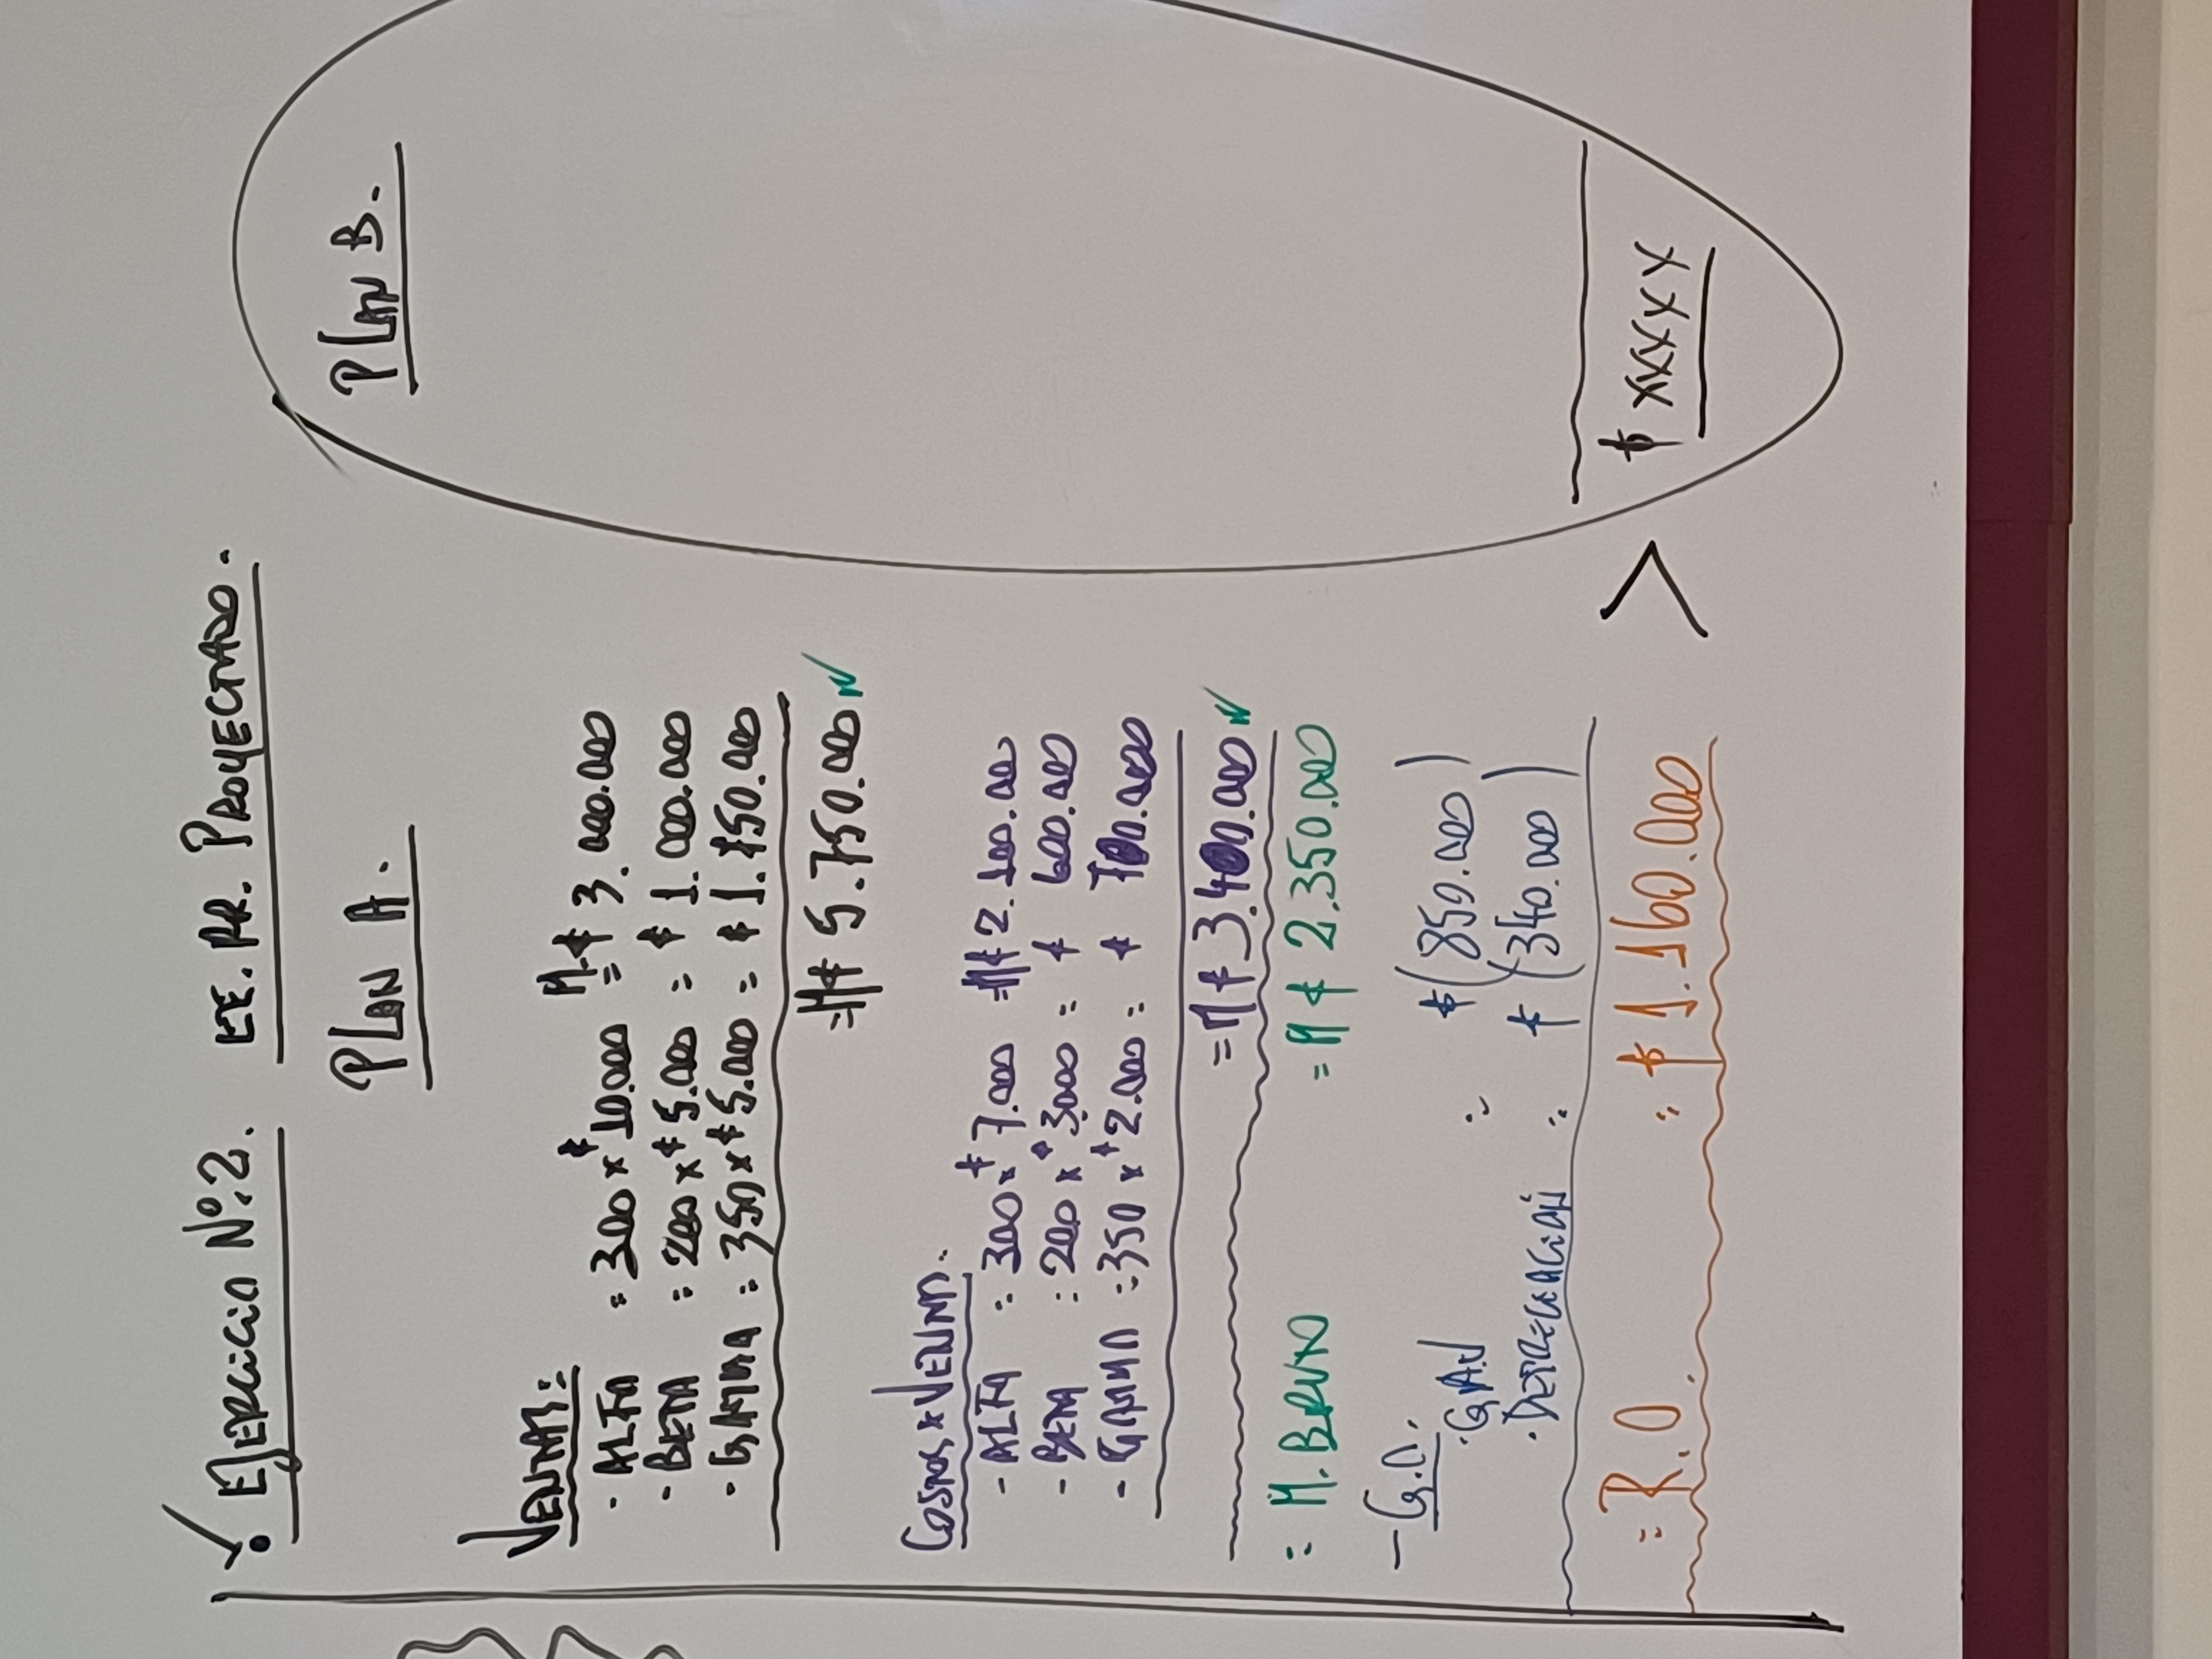 Ejercicio Nº.2. EE.RR. Proyectado.
Plan A.
Ventas:
- Alfa = 300 x $10.000 = M.$ 3.000.000
- Beta = 200 x $5.000 = $ 1.000.000
- Gamma = 350 x $5.000 = $ 1.750.000
= M$ 5.750.000
Costos x Venta.
- Alfa = 300 x $7.000 = M$ 2.100.000
- Beta = 200 x $3.000 = $ 600.000
- Gamma = 350 x $2.000 = $ 700.000
= M$ 3.400.000
= M. Bruto = M$ 2.350.000
- G.O.
· GAV = $(850.000)
· Depreciación = $(340.000)
= R.O. = $ 1.160.000 >
Plan B.
$ xxxxx